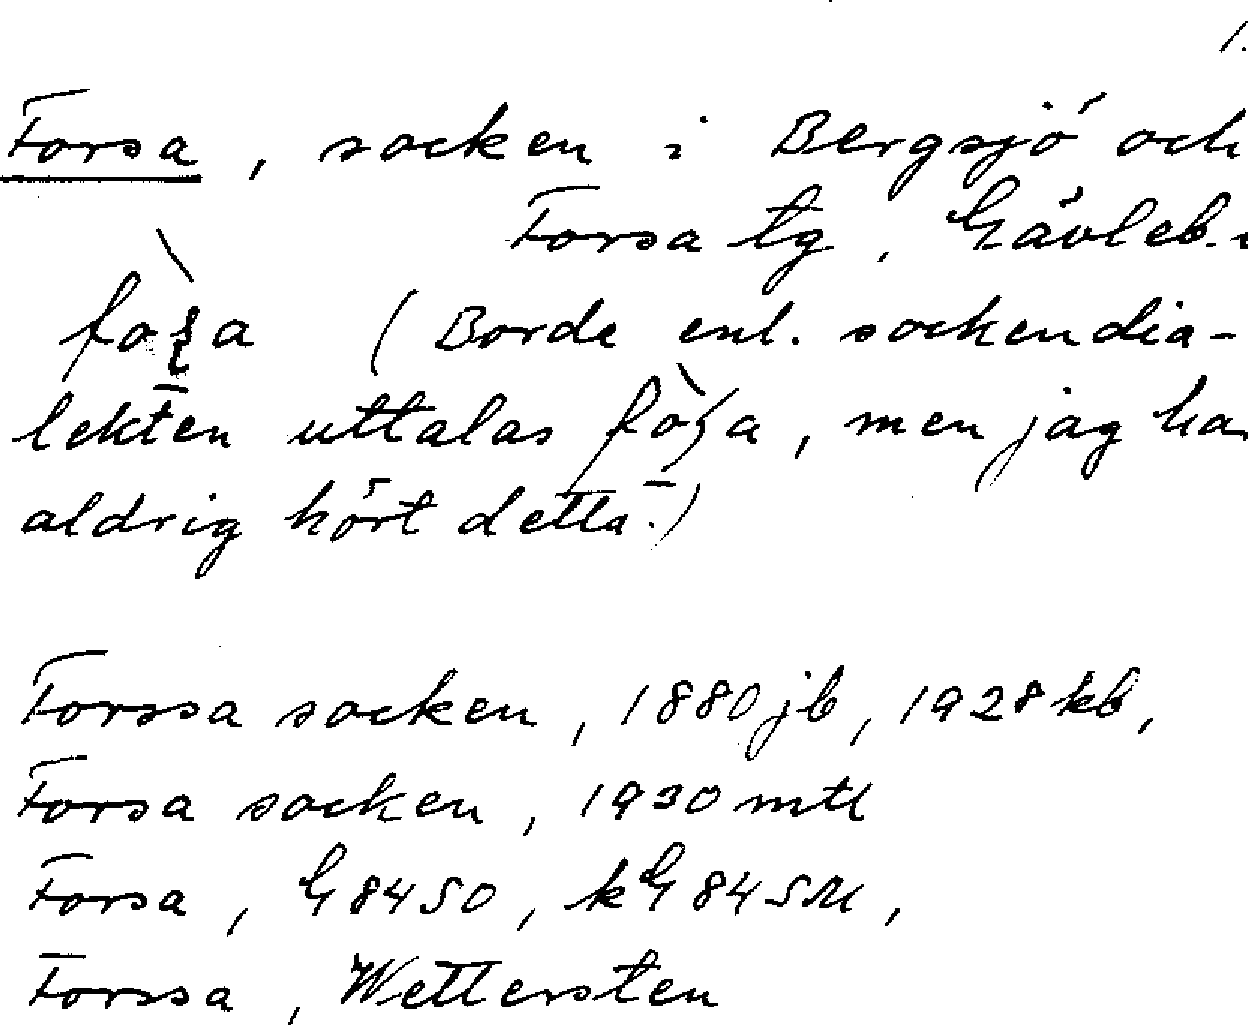 1.
Forsa, socken i Bergsjö och
Forsa tg, Gävleb.
(Borde enl. sockendia-
lekten uttalas, men jag ha
aldrig hört detta.)
Forssa socken, 1880 jb, 1928 kb,
Forsa socken, 1930 mtl
Forsa, G 84 SO, k G 84 SU,
Forssa, Wettersten